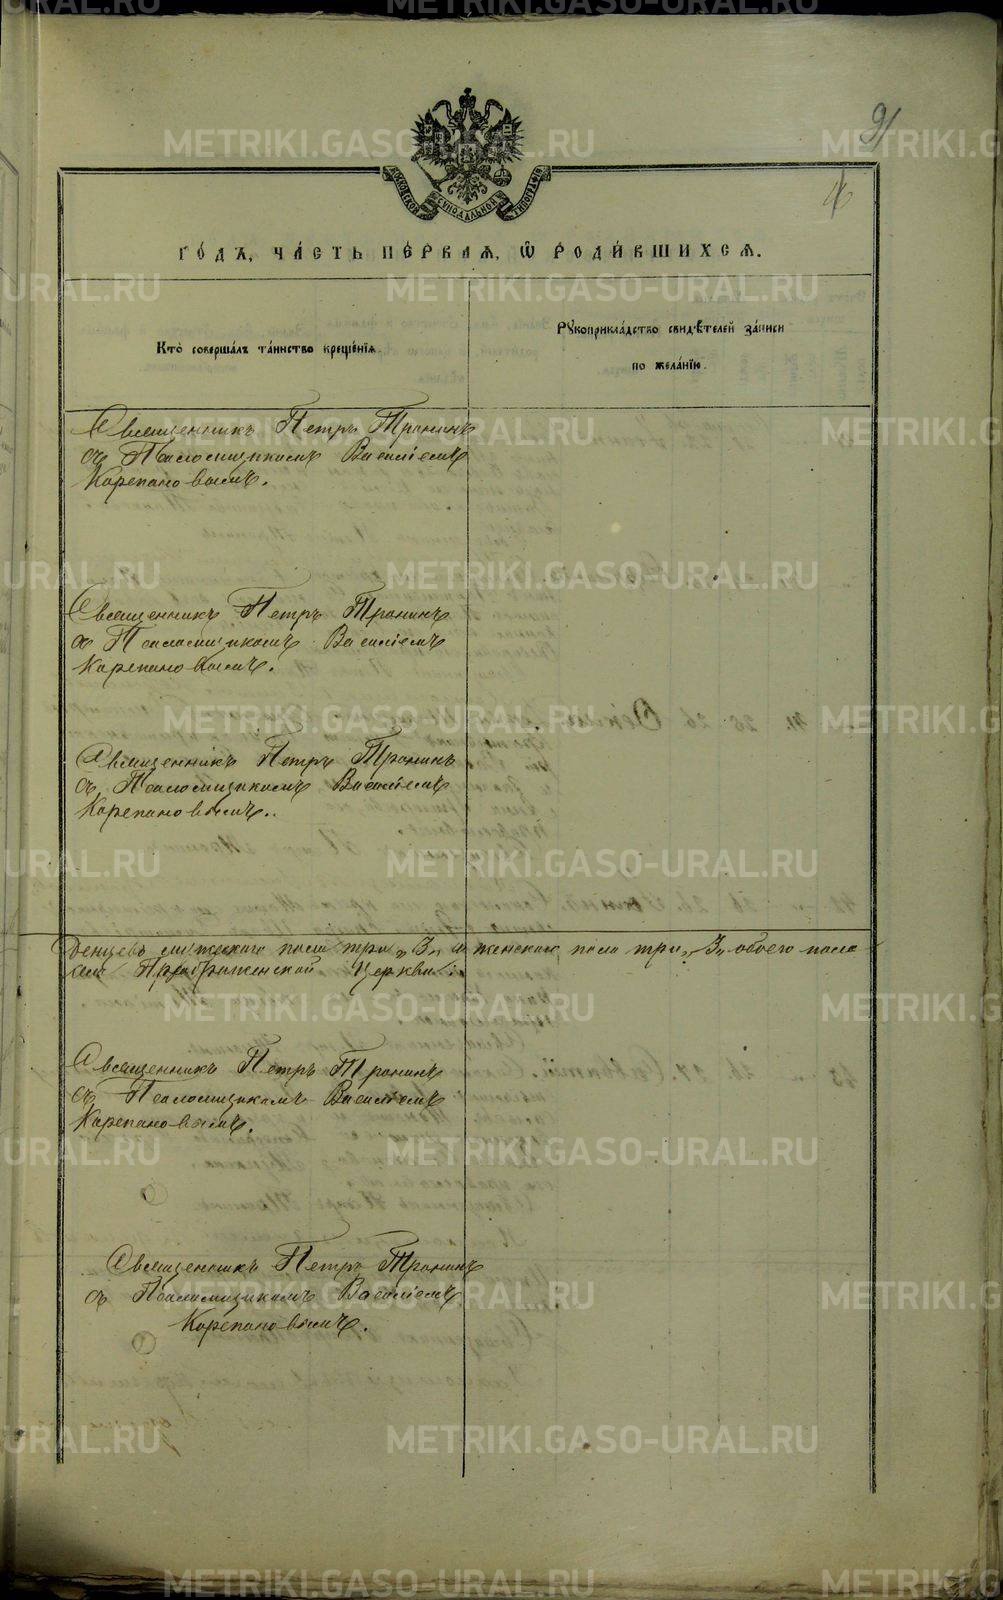 METRIKI.GASO-URAL.RU
91
16
МОСКОВСКОЙ СУНОДАЛЬНОЙ ТИПОГРАФІИ
го́дъ, ча́сть пе́рваѧ, ѡ҆ роди́вшихсѧ.
Кто̀ соверша́лъ та́инство креще́нїѧ.
Рꙋкоприкла́дство свидѣ́телей за́писи
по жела́нїю.
Священникъ Петръ Тронинъ
съ Псаломщикомъ Василіемъ
Карепановымъ.
Священникъ Петръ Тронинъ
съ Псаломщикомъ Василіемъ
Карепановымъ.
Священникъ Петръ Тронинъ
съ Псаломщикомъ Василіемъ
Карепановымъ.
денцевъ мужескаго пола три „3„ и женскаго пола три „3„ обоего пола
Преображенской Церкви
Священникъ Петръ Тронинъ
съ Псаломщикомъ Василіемъ
Карепановымъ.
Священникъ Петръ Тронинъ
съ Псаломщикомъ Василіемъ
Карепановымъ.